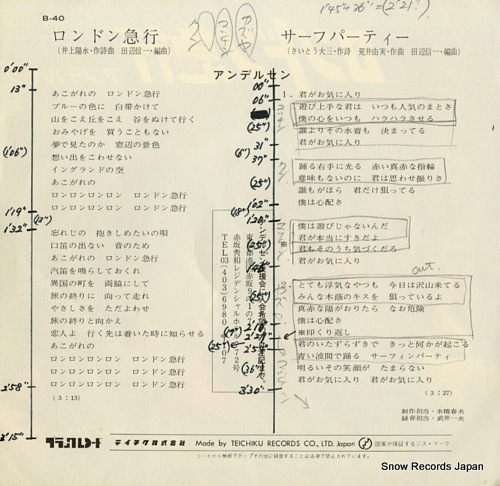 B-40
1'45"+36"=(2'21")
ロンドン急行
(井上陽水・作詩曲 田辺信一・編曲)
サーフパーティー
(さいとう大三・作詩 荒井由実・作曲 田辺信一・編曲)
アンデルセン
0'00"
13"
(1'06")
1'19"
(13")
1'32"
2'58"
3'15"
あこがれの ロンドン急行
ブルーの色に 白帯かけて
山をこえ丘をこえ 谷をぬけて行く
おみやげを 買うこともない
夢で見たのか 窓辺の景色
想い出をこわせない
イングランドの空
あこがれの
ロンロンロンロン ロンドン急行
ロンロンロンロン ロンドン急行
忘れじの 抱きしめたい唄
口笛の出ない 音のため
あこがれの ロンドン急行
汽笛を鳴らしておくれ
異国の町を 両脇にして
旅の終りに 向って走れ
やさしさを ただよわせ
旅の終りと向かえ
恋人よ 行く先は着いた時に知らせる
あこがれの
ロンロンロンロン ロンドン急行
ロンロンロンロン ロンドン急行
ロンロンロンロン ロンドン急行
(3:13)
00"
06"
(25")
31"
(6")
37"
(25")
1'02"
(18")
1'20"
(25")
1'45"
(25")
(36")
3'30"
1. 君がお気に入り
遊び上手な君は いつも人気のまとさ
僕の心をいつも ハラハラさせる
誰よりその水着も 決まってる
君がお気に入り
踊る右手に光る 赤い真赤な指輪
意味もないのに 君は思わせ振りさ
誰もがほら 君だけ狙ってる
僕は心配さ
※
僕は遊びじゃないんだ
君が本当にすきだよ
君もそのうち気づくだろう
君がお気に入り
out.
2.
とても浮気なやつも 今日は沢山来てる
みんな木蔭のキスを 狙っているよ
真赤な陽がおりたら なお危険
僕は心配さ
※印くり返し
君のいたずらずきで きっと何かが起こる
青い波間で踊る サーフィンパーティ
明るいその笑顔が たまらない
君がお気に入り 君がお気に入り
(3:27)
制作担当・水橋春夫
録音担当・武井一夫
ブラックレコード
テイチク
Made by TEICHIKU RECORDS CO., LTD. Japan
国家が保証するジス・マーク
レコードから無断でテープその他に録音することは法律で禁じられています。
Snow Records Japan